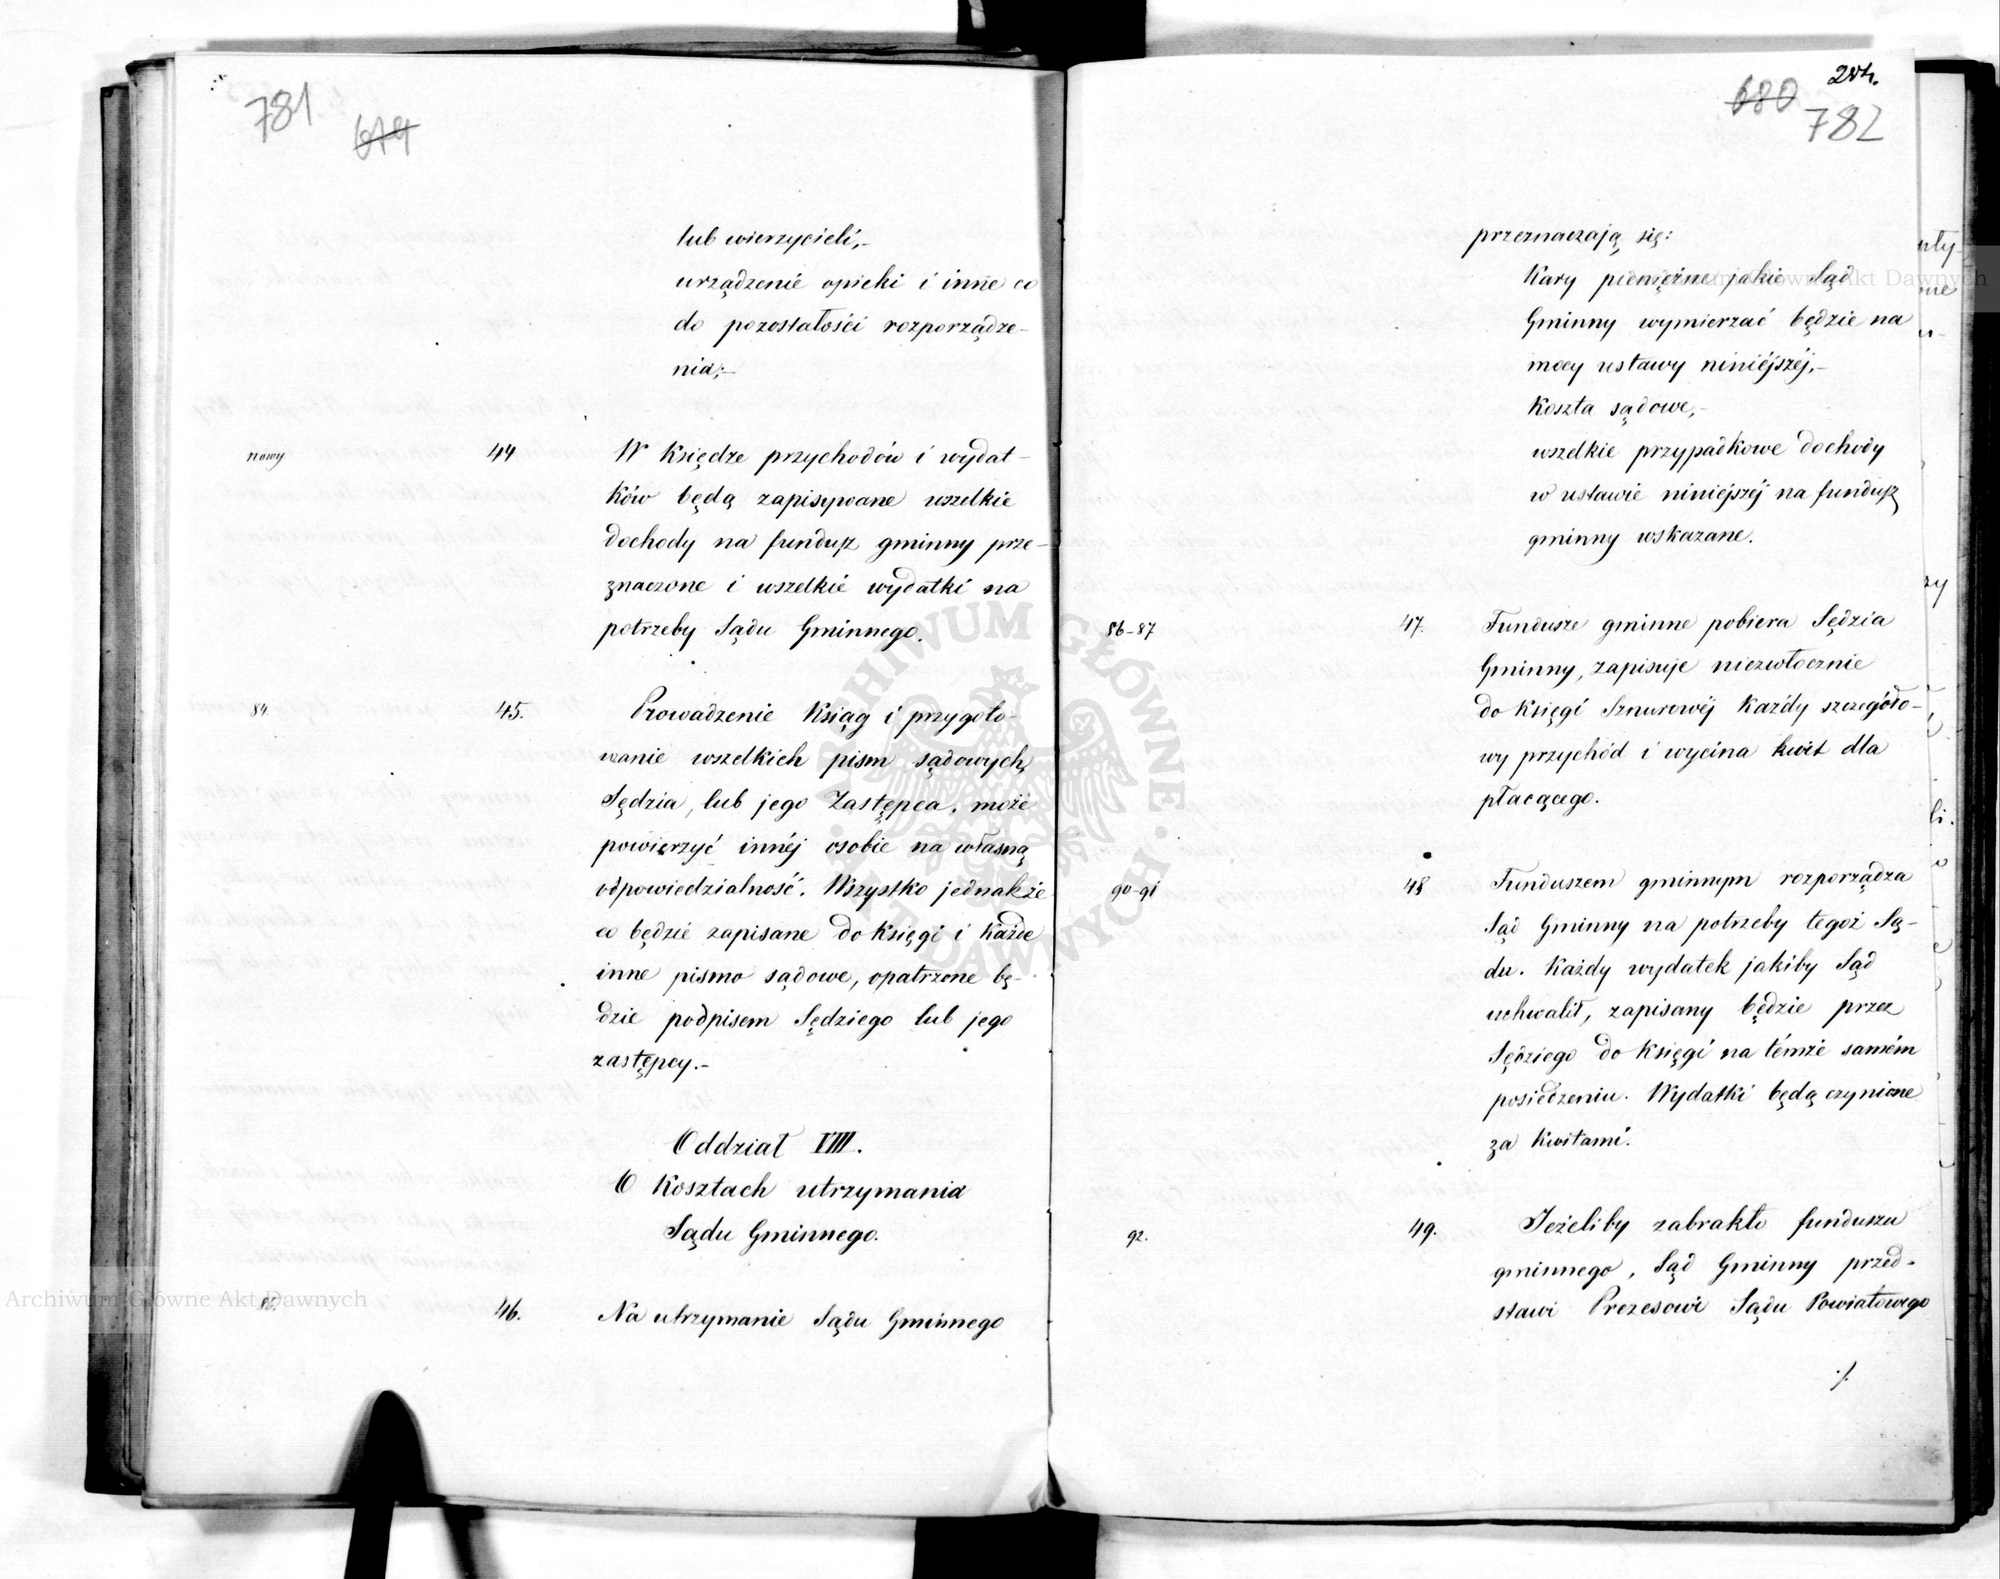 781
679
lub wierzycieli,-
urządzenié opieki i inne co
do pozostałości rozporządze-
nia;-
nowy 44 W Księdze przychodów i wydat-
ków będą zapisywane wszelkie
dochody na fundusz gminny prze-
znaczone i wszelkié wydatki na
potrzeby Sądu Gminnego.
84. 45. Prowadzenie Ksiąg i przygoto-
wanie wszelkich pism sądowych,
Sędzia, lub jego Zastępca, może
powierzyć innéj osobie na własną
odpowiedzialność. Wszystko jednakże
co będzié zapisane do księgi i każde
inne pismo sądowe, opatrzone bę-
dzie podpisem Sędziego lub jego
zastępcy.-
Oddział VIII.
O Kosztach utrzymania
Sądu Gminnego.
46. Na utrzymanie Sądu Gminnego
680
782
przeznaczają się:
Kary pieniężne jakie Sąd
Gminny wymierzać będzie na
mocy ustawy niniéjszéj,-
Koszta sądowe,-
wszelkie przypadkowe dochody
w ustawie niniejszéj na fundusz
gminny wskazane.
86-87 47. Fundusze gminne pobiera Sędzia
Gminny, zapisuje niezwłocznie
do księgi Sznurowéj Każdy szczegóło-
wy przychód i wycina kwit dla
płacącego.
90-91 48 Funduszem gminnym rozporządza
Sąd Gminny na potrzeby tegoż Są-
du. Każdy wydatek jakiby Sąd
uchwalił, zapisany będzie przez
Sędziego do księgi na témże samém
posiedzeniu. Wydatki będą czynione
za kwitami.
92. 49. Jeżeliby zabrakło funduszu
gminnego, Sąd Gminny przed-
stawi Prezesowi Sądu Powiatowego
./.
Archiwum Główne Akt Dawnych
Archiwum Główne Akt Dawnych
ARCHIWUM GŁÓWNE AKT DAWNYCH